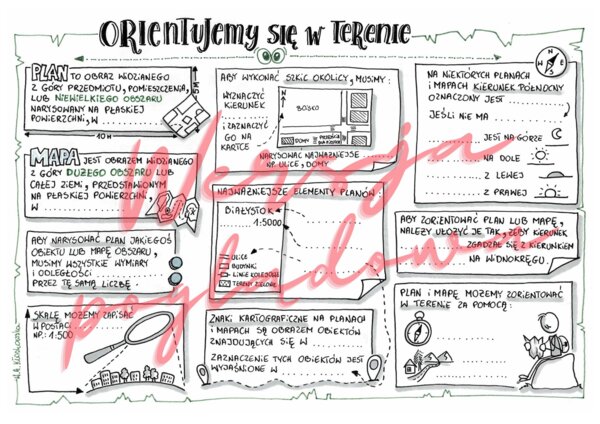 ORIENTUJEMY SIĘ W TERENIE
PLAN TO OBRAZ WIDZIANEGO
Z GÓRY PRZEDMIOTU, POMIESZCZENIA,
LUB NIEWIELKIEGO OBSZARU
NARYSOWANY NA PŁASKIEJ
POWIERZCHNI, W ..........
10 M
5 M
MAPA JEST OBRAZEM WIDZIANEGO
Z GÓRY DUŻEGO OBSZARU LUB
CAŁEJ ZIEMI, PRZEDSTAWIONYM
NA PŁASKIEJ POWIERZCHNI,
W ..........
ABY NARYSOWAĆ PLAN JAKIEGOŚ
OBIEKTU LUB MAPĘ OBSZARU,
MUSIMY WSZYSTKIE WYMIARY
I ODLEGŁOŚCI ..........
PRZEZ TĘ SAMĄ LICZBĘ
SKALĘ MOŻEMY ZAPISAĆ
W POSTACI ..........
NP.: 1:500
ABY WYKONAĆ SZKIC OKOLICY, MUSIMY:
WYZNACZYĆ
KIERUNEK
..........
I ZAZNACZYĆ
GO NA
KARTCE
N
BOISKO
DOMY
NARYSOWAĆ NAJWAŻNIEJSZE ..........
NP. ULICE, DOMY
NAJWAŻNIEJSZE ELEMENTY PLANÓW:
BIAŁYSTOK
1:5000
ULICE
BUDYNKI
LINIE KOLEJOWE
TERENY ZIELONE
ZNAKI KARTOGRAFICZNE NA PLANACH
I MAPACH SĄ OBRAZEM OBIEKTÓW
ZNAJDUJĄCYCH SIĘ W ..........
ZAZNACZENIE TYCH OBIEKTÓW JEST
WYJAŚNIONE W ..........
N
E
S
W
NA NIEKTÓRYCH PLANACH
I MAPACH KIERUNEK PÓŁNOCNY
OZNACZONY JEST ..........
JEŚLI NIE MA ..........
.......... JEST NA GÓRZE
.......... NA DOLE
.......... Z LEWEJ
.......... Z PRAWEJ
ABY ZORIENTOWAĆ PLAN LUB MAPĘ,
NALEŻY UŁOŻYĆ JE TAK, ŻEBY KIERUNEK
.......... ZGADZAŁ SIĘ Z KIERUNKIEM
.......... NA WIDNOKRĘGU.
PLAN I MAPĘ MOŻEMY ZORIENTOWAĆ
W TERENIE ZA POMOCĄ:
Wersja
poglądowa